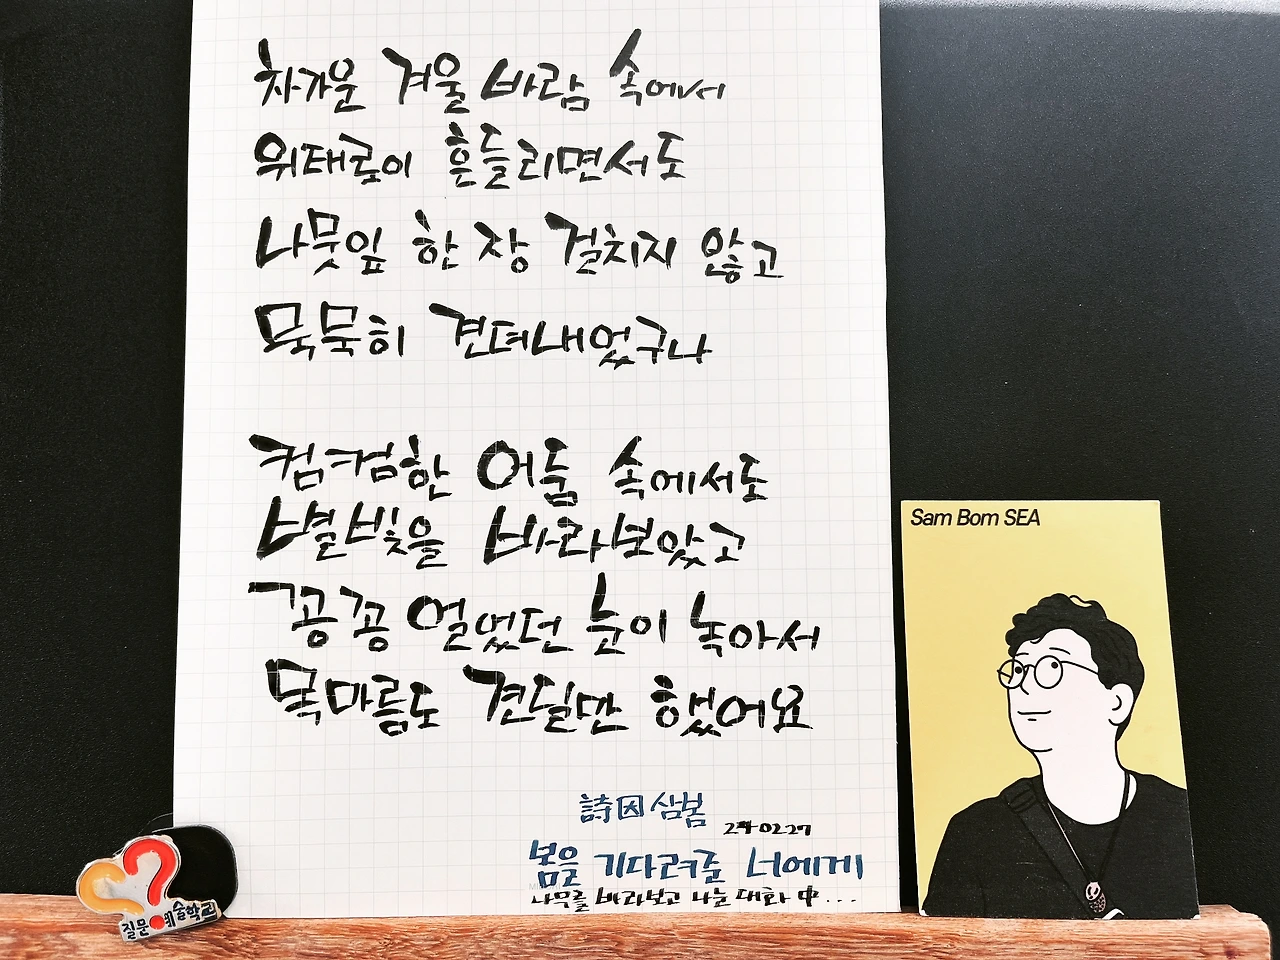 차가운 겨울 바람 속에서
위태로이 흔들리면서도
나뭇잎 한 장 걸치지 않고
묵묵히 견뎌내었구나
컴컴한 어둠 속에서도
별빛을 바라보았고
꽁꽁 얼었던 눈이 녹아서
목마름도 견딜만 했어요
詩因 삼봄
24.02.27
봄을 기다려준 너에게
나무를 바라보고 나눈 대화 中....
Sam Bom SEA
질문예술학교